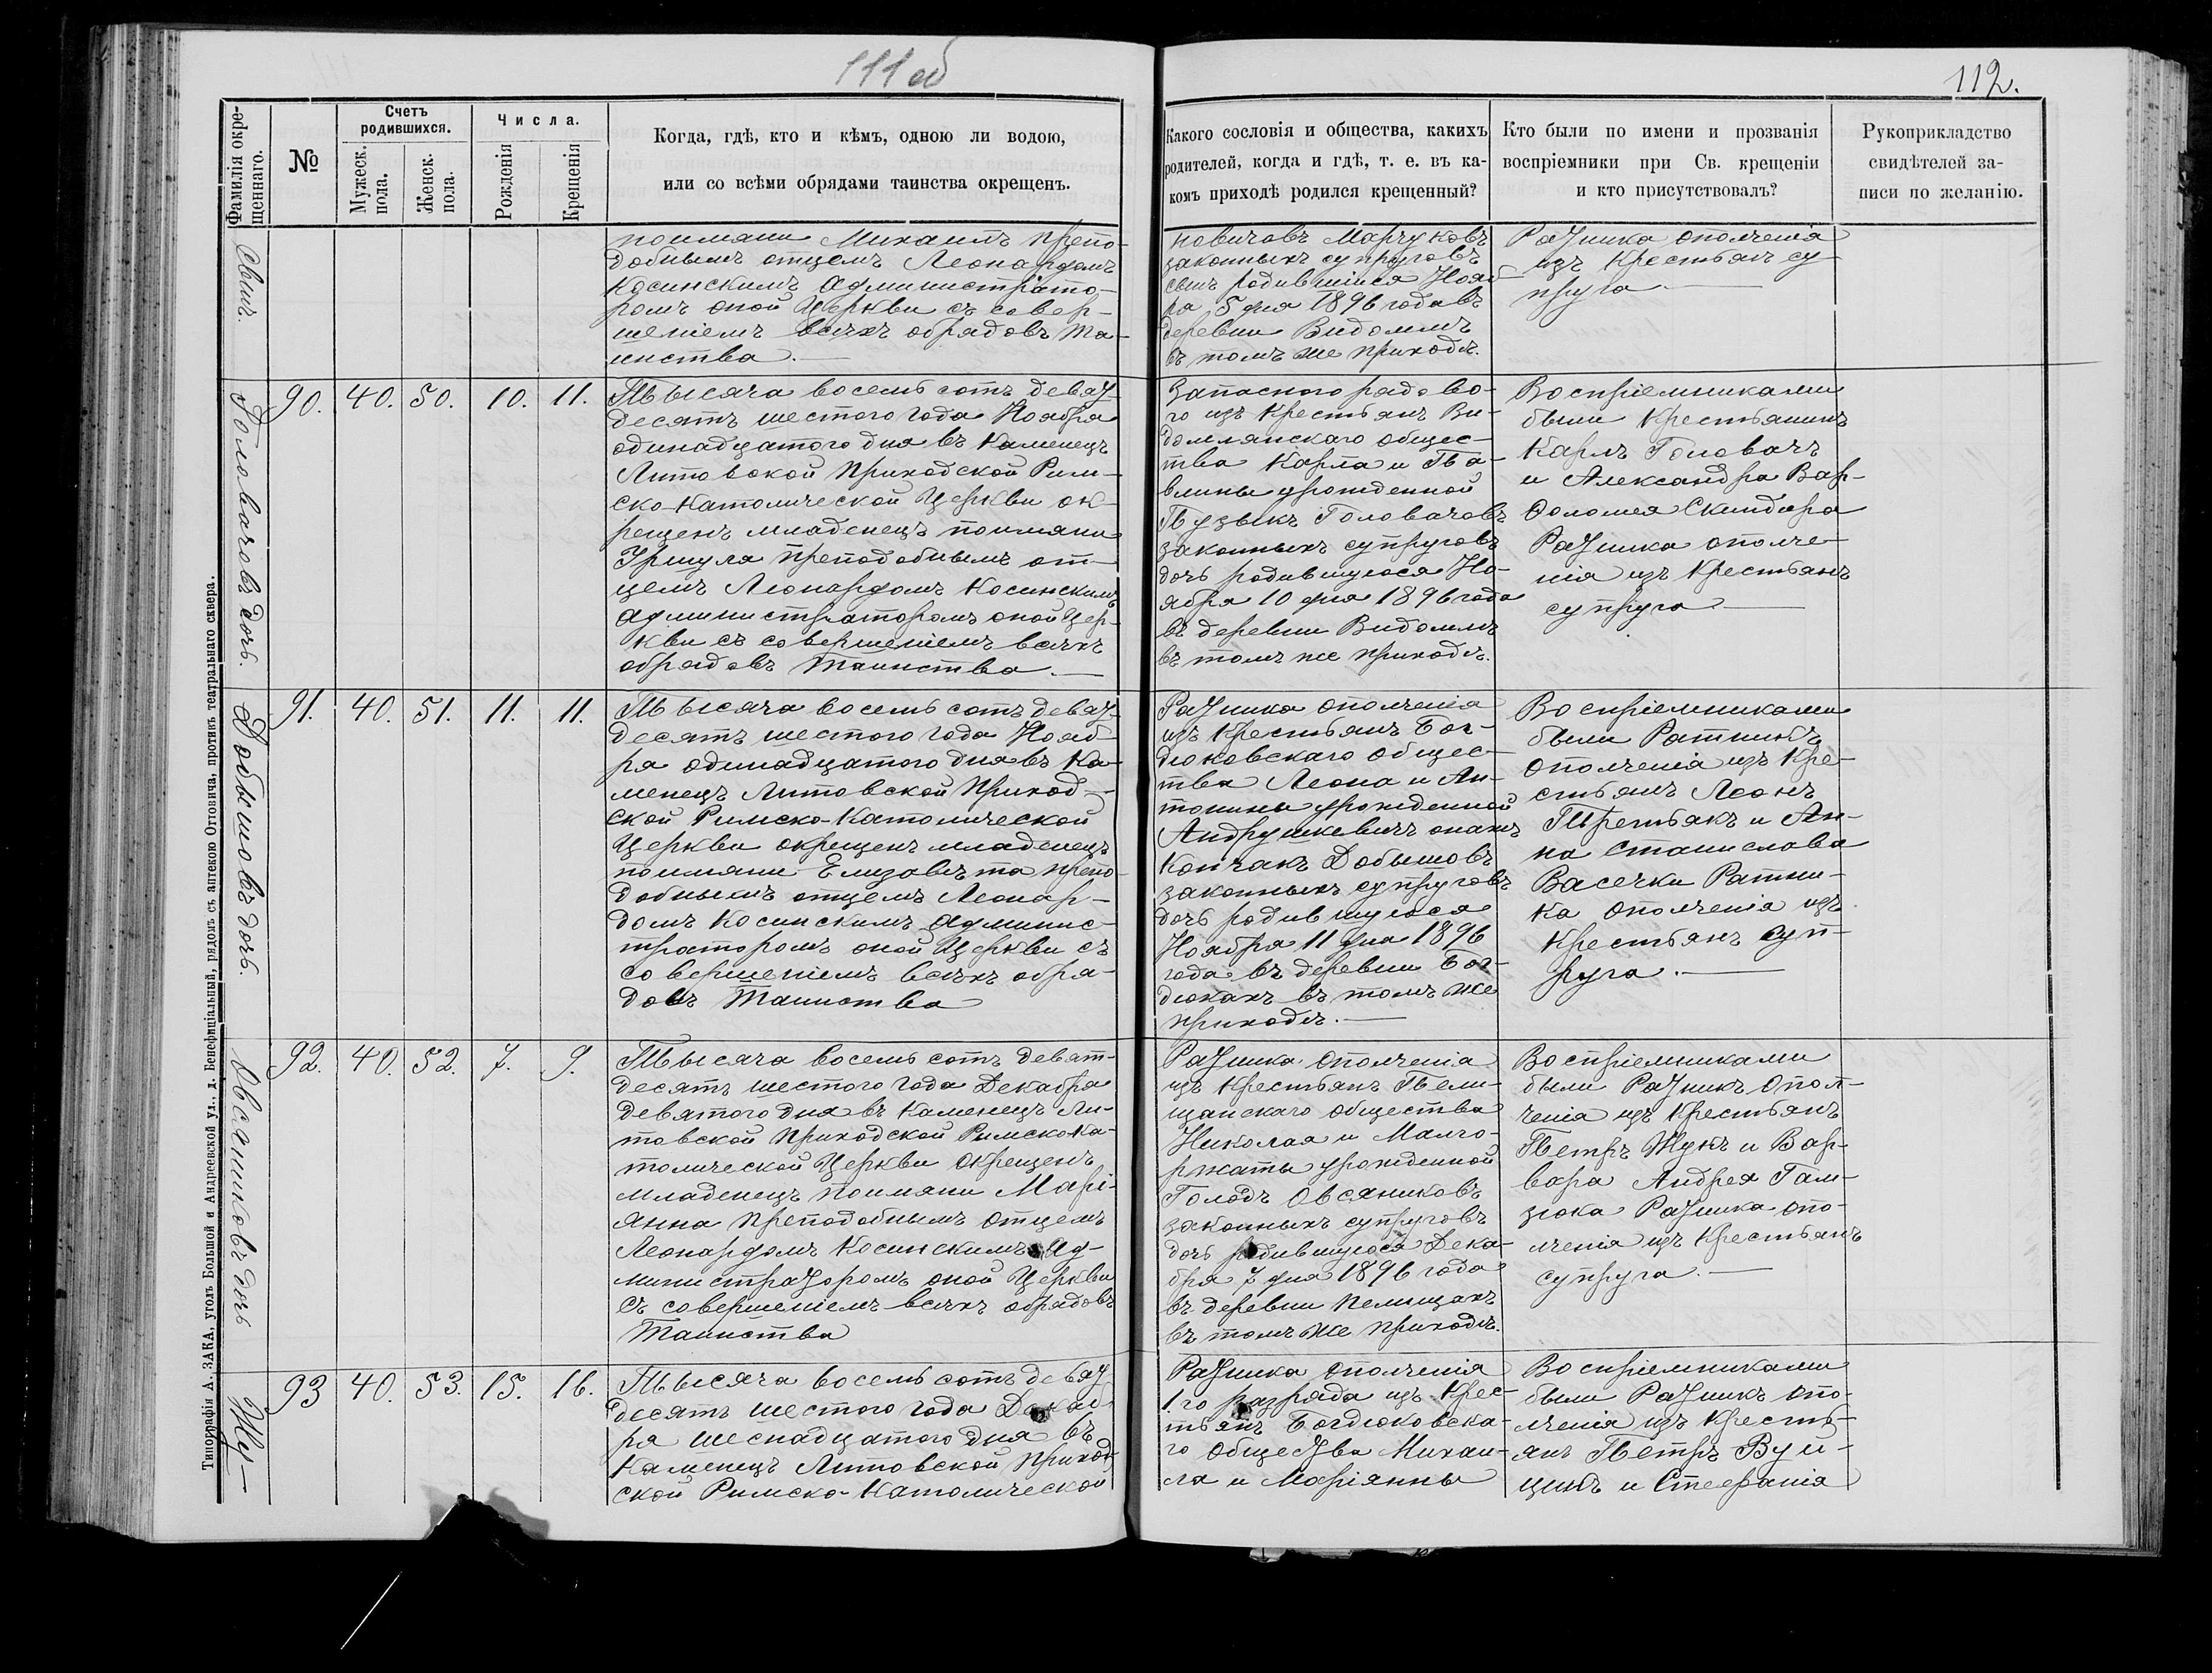 111 об
112.
Фамилія окре-
щеннаго.
№
Счетъ
родившихся.
Мужеск.
пола.
Женск.
пола.
Числа.
Рожденія
Крещенія
Когда, гдѣ, кто и кѣмъ, одною ли водою,
или со всѣми обрядами таинства окрещенъ.
Какого сословія и общества, какихъ
родителей, когда и гдѣ, т. е. въ ка-
комъ приходѣ родился крещенный?
Кто были по имени и прозванія
воспріемники при Св. крещеніи
и кто присутствовалъ?
Рукоприкладство
свидѣтелей за-
писи по желанію.
поимяни Михаилъ препо-
добнымъ отцемъ Леонардомъ
Косинскимъ Администрато-
ромъ оной Церкви съ совер-
шеніемъ всѣхъ обрядовъ Та-
инства.
новичовъ Марчуковъ
законныхъ супруговъ
сынъ родившійся Нояб-
ря 5 дня 1896 года въ
деревни Видомлѣ
въ томъ же приходѣ.
Ратника ополченія
изъ Крестьянъ су-
пруга.
Головачовъ дочь.
90. 40. 50. 10. 11.
Тысяча восемь сотъ девят-
десятъ шестого года Ноября
одинадцатого дня въ Каменецъ
Литовской Приходской Рим-
ско-Католической Церкви ок-
рещенъ младенецъ поимяни
Уршуля преподобнымъ от-
цемъ Леонардомъ Косинскимъ
Администраторомъ оной Цер-
кви съ совершеніемъ всѣхъ
обрядовъ Таинства.
Запасного рядово-
го изъ Крестьянъ Ви-
домлянскаго общес-
тва Карла и Па-
влины урожденной
Пузыкъ Головачовъ
законныхъ супруговъ
дочь родившуюся Но-
ября 10 дня 1896 года
въ деревни Видомлѣ
въ томъ же приходѣ.
Воспріемниками
были Крестьянинъ
Карлъ Головачъ
и Александра Вар-
фоломея Скиндера
Ратника ополче-
нія изъ Крестьянъ
супруга
Добышовъ дочь.
91. 40. 51. 11. 11.
Тысяча восемь сотъ девят-
десятъ шестого года Нояб-
ря одинадцатого дня въ Ка-
менецъ Литовской Приход-
ской Римско-Католической
Церкви окрещенъ младенецъ
поимяни Елизавѣта препо-
добнымъ отцемъ Леонар-
домъ Косинскимъ Админис-
траторомъ оной Церкви съ
совершеніемъ всѣхъ обря-
довъ Таинства
Ратника ополченія
изъ Крестьянъ Бог-
дюковскаго общес-
тва Леона и Ан-
тонины урожденной
Андрушкевичъ онаяжъ
Кончакъ Добышовъ
законныхъ супруговъ
дочь родившуюся
Ноября 11 дня 1896
года въ деревни Бог-
дюкахъ въ томъ же
приходѣ.
Воспріемниками
были Ратникъ
ополченія изъ Кре-
стьянъ Леонъ
Третьякъ и Ан-
на Станислава
Васечки Ратни-
ка ополченія изъ
Крестьянъ Суп-
руга.
Овсяниковъ дочь
92. 40. 52. 7. 9.
Тысяча восемь сотъ девят-
десятъ шестого года Декабря
девятого дня въ Каменецъ Ли-
товской Приходской Римско-Ка-
толической Церкви окрещенъ
младенецъ поимяни Марі-
янна преподобнымъ отцемъ
Леонардомъ Косинскимъ Ад-
министраторомъ оной Церкви
съ совершеніемъ всѣхъ обрядовъ
Таинства
Ратника ополченія
изъ Крестьянъ Пели-
щанскаго общества
Николая и Малго-
ржаты урожденной
Голодъ Овсяниковъ
законныхъ супруговъ
дочь родившуюся Дека-
бря 7 дня 1896 года
въ деревни Пелищахъ
въ томъ же приходѣ.
Воспріемниками
были Ратникъ Опол-
ченія изъ Крестьянъ
Петръ Жукъ и Вар-
вара Андрея Гам-
зюка Ратника опо-
лченія изъ Крестьянъ
супруга.
Жу-
93 40. 53. 15. 16.
Тысяча восемь сотъ девят-
десятъ шестого года Декаб-
ря шеснадцатого дня въ
Каменецъ Литовской Приход-
ской Римско-Католической
Ратника ополченія
1.го разряда изъ Крес-
тьянъ Богдюковска-
го общества Михаи-
ла и Маріянны
Воспріемниками
были Ратникъ опо-
лченія изъ Кресть-
янъ Петръ Вуй-
цикъ и Стефанія
Типографія А. ЗАКА, уголъ Большой и Андреевской ул., д. Бенефиціальный, рядомъ съ аптекою Оттовича, противъ театральнаго сквера.